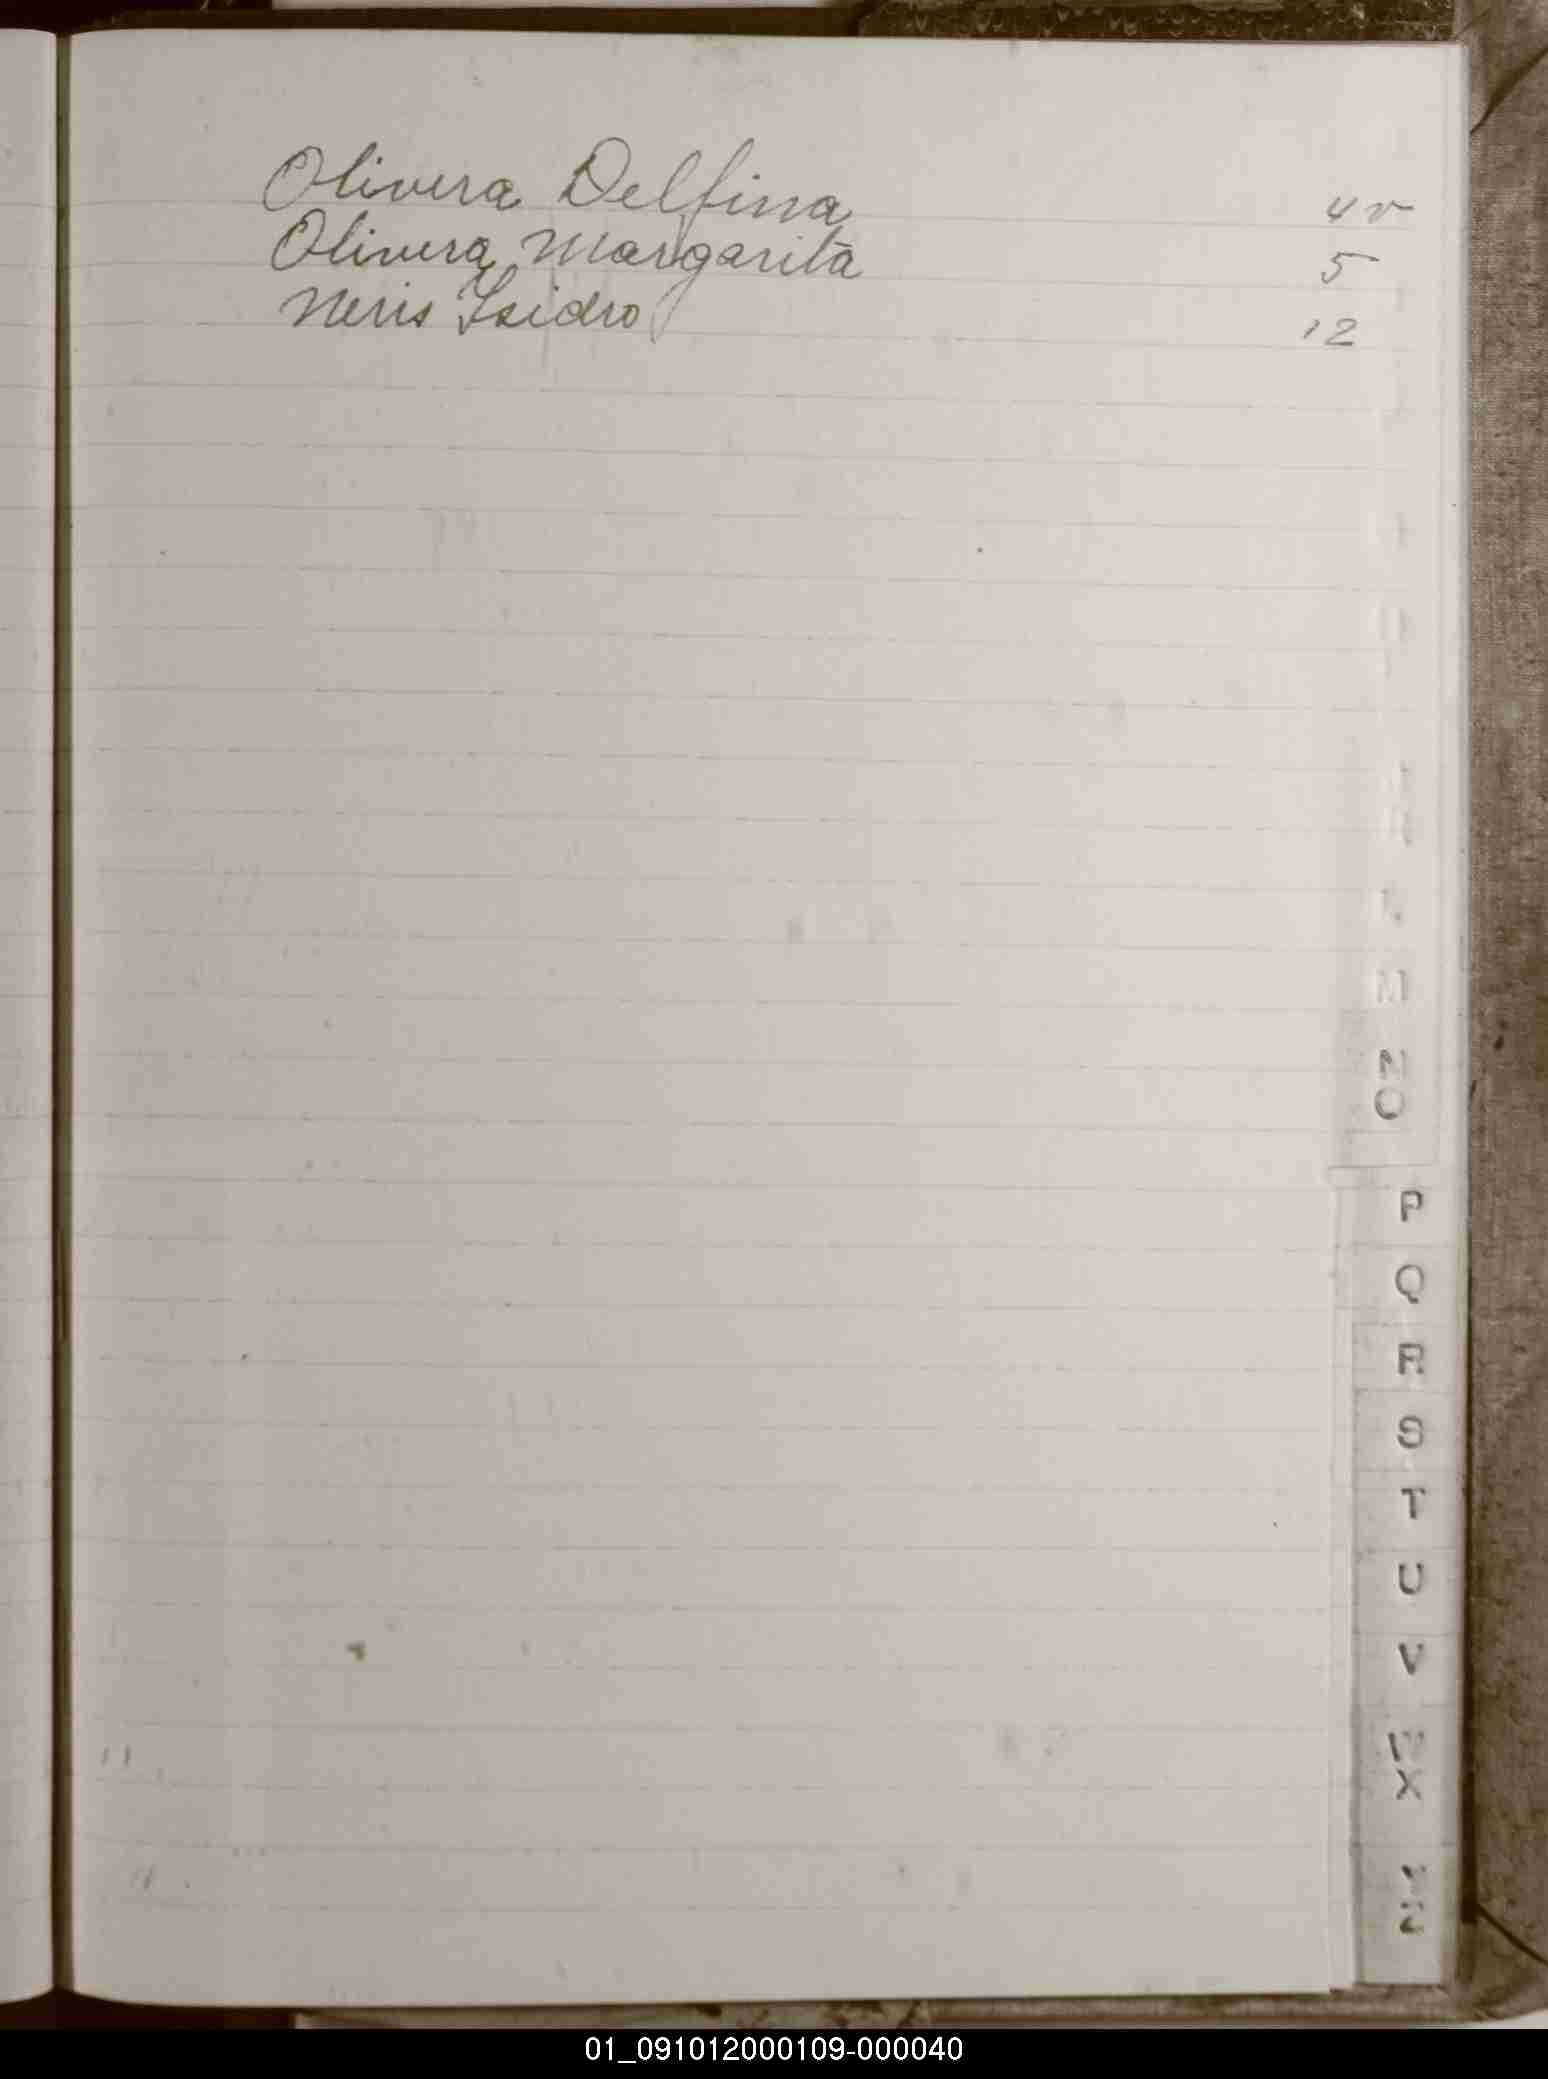 Olivera Delfina 4v
Olivera Margarita 5
Neris Isidro 12
M
N
O
P
Q
R
S
T
U
V
W
X
Y
Z
01_091012000109-000040